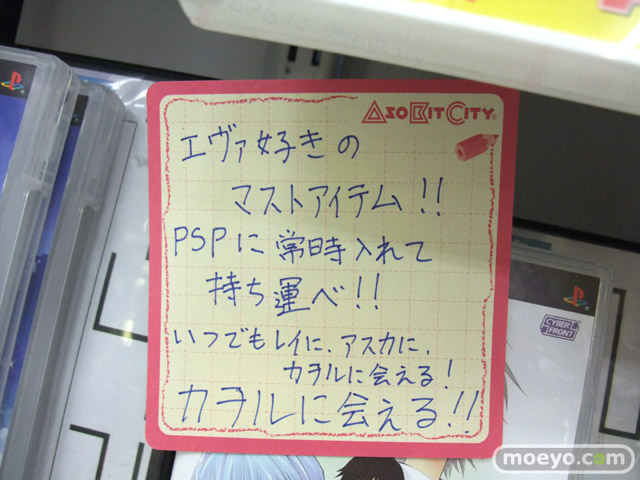 AsoBitCity
エヴァ好きの
マストアイテム!!
PSPに常時入れて
持ち運べ!!
いつでもレイに、アスカに、
カヲルに会える!
カヲルに会える!!
CYBER
FRONT
moeyo.com